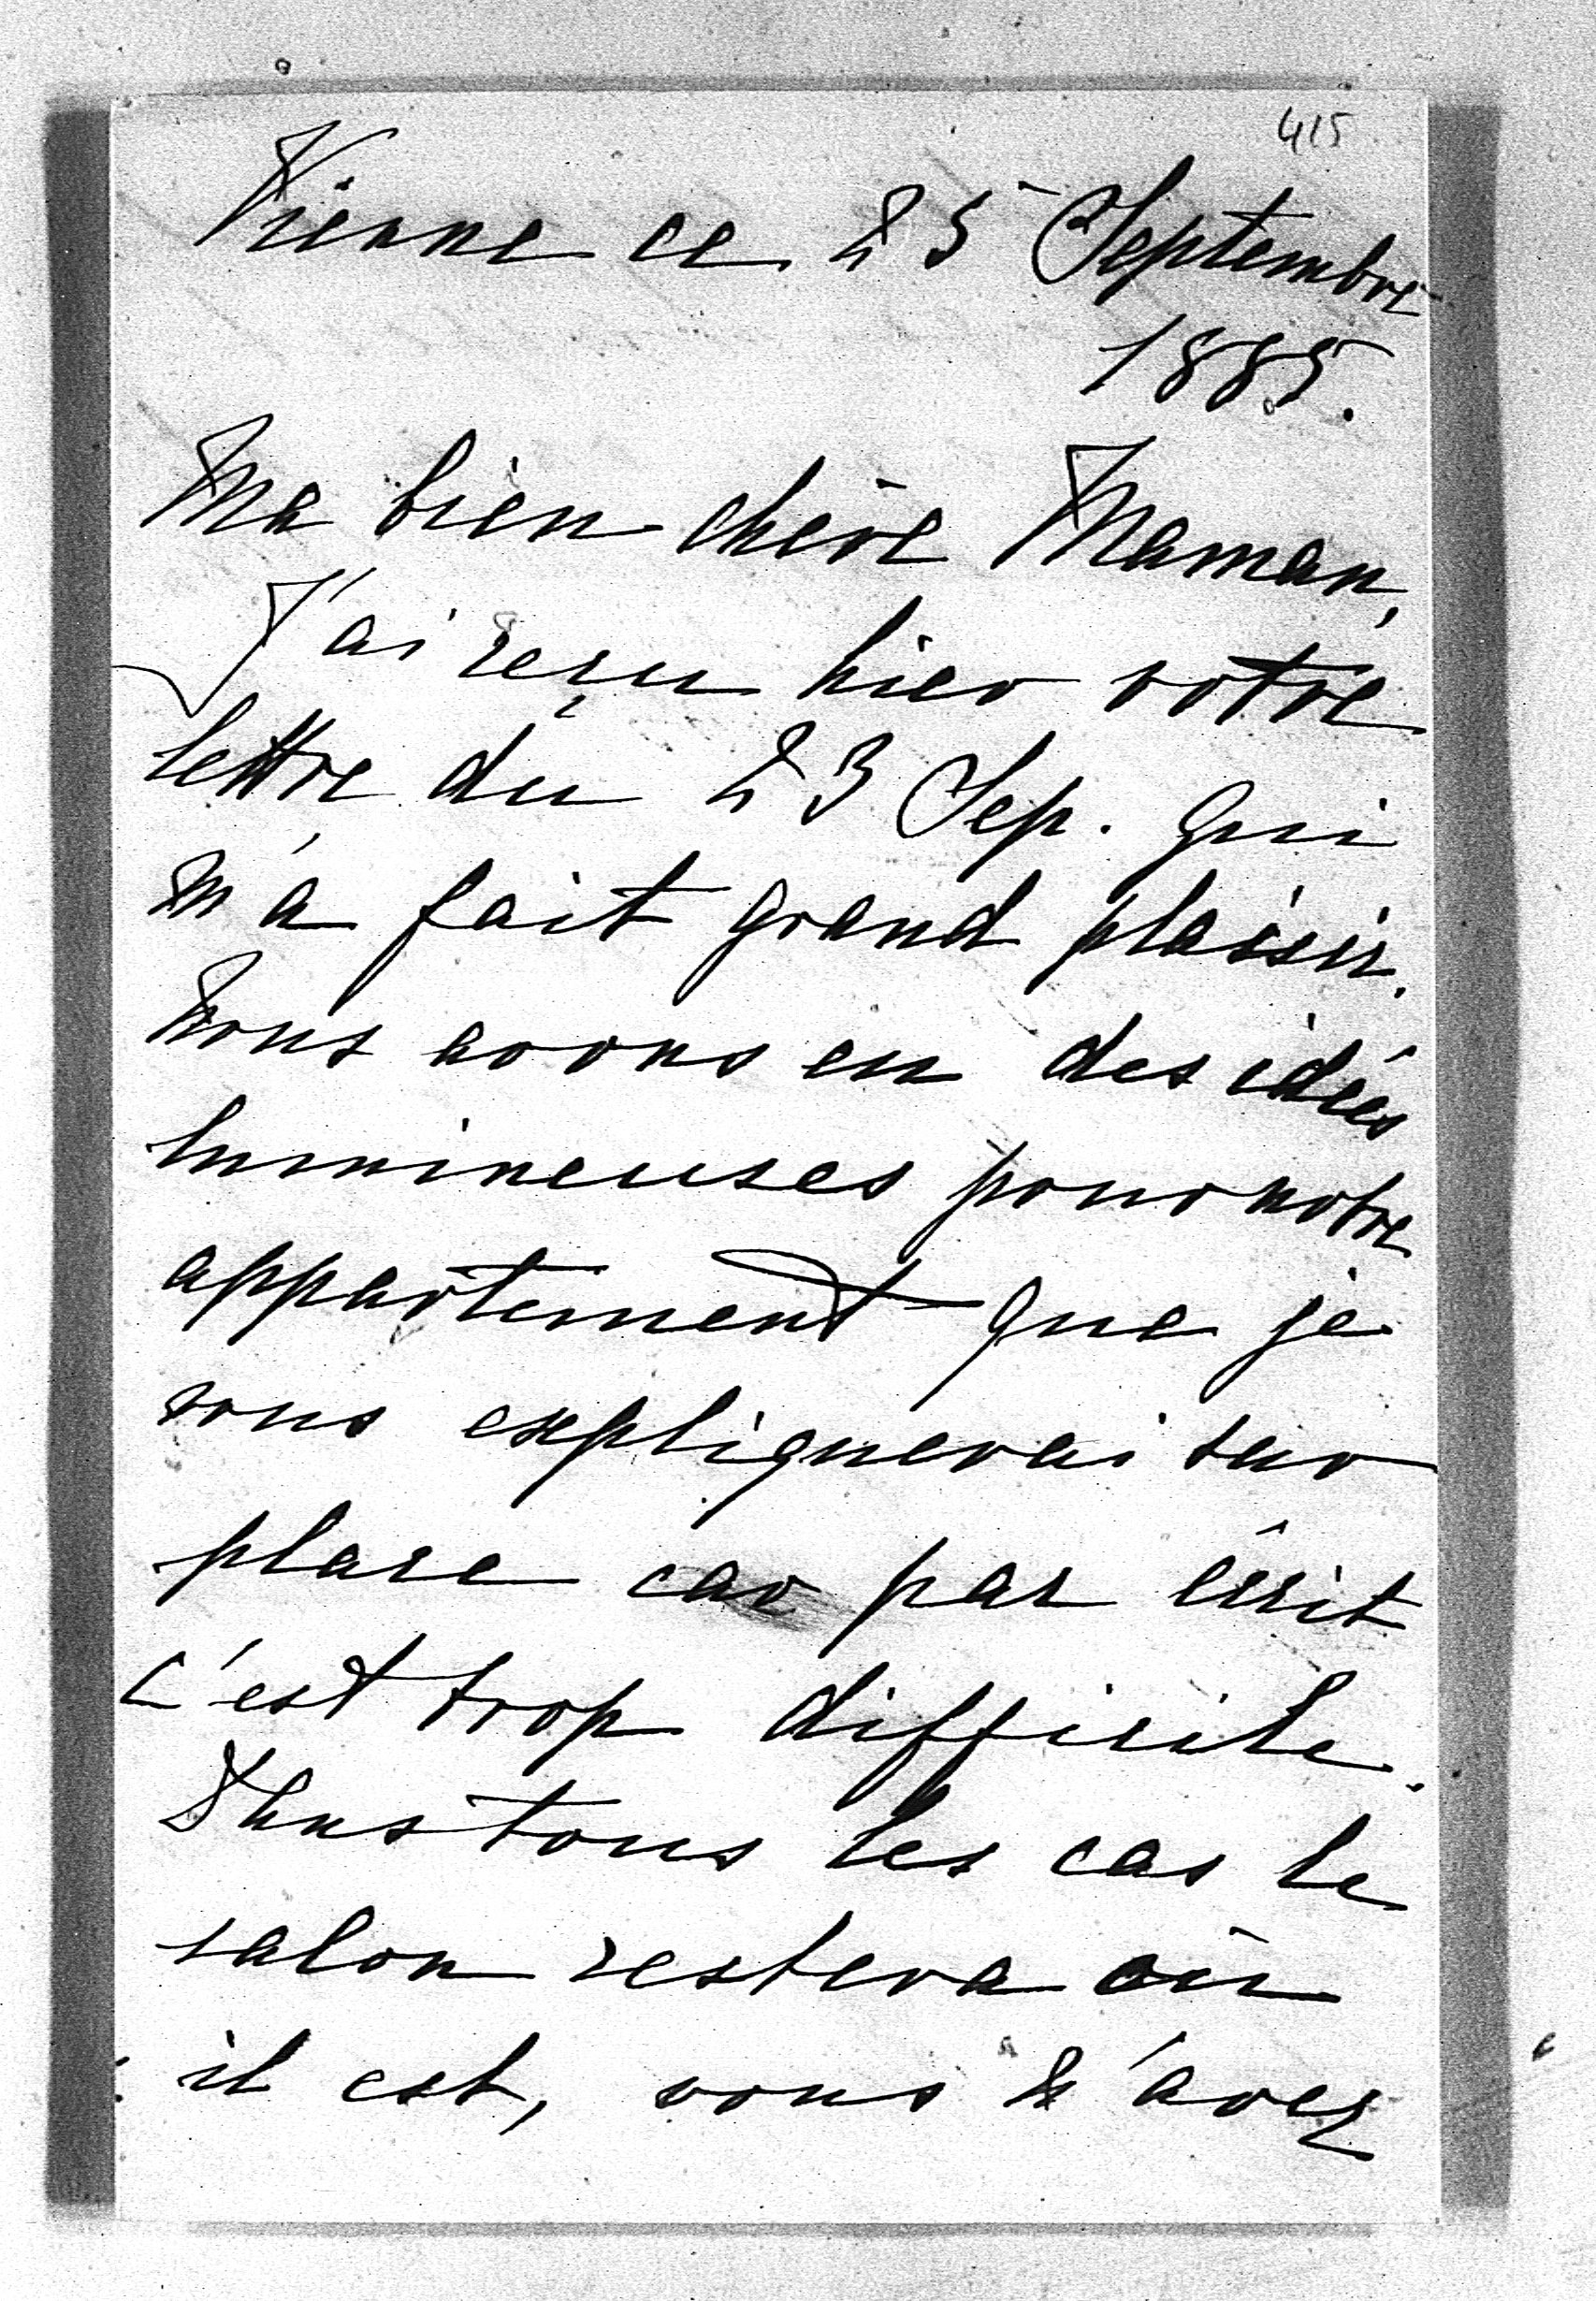 415
Vienne ce 25 Septembre
1885.
Ma bien chère Maman,
J'ai reçu hier votre
lettre du 23 Sep. qui
m'a fait grand plaisir.
Nous avons eu des idées
lumineuses pour notre
appartement que je
vous expliquerai sur
place car par écrit
c'est trop difficile.
Dans tous les cas le
salon restera où
il est, vous n'avez